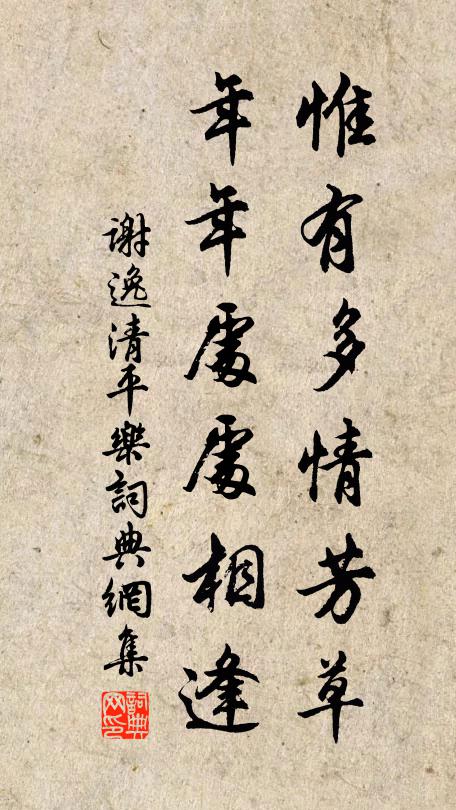 惟有多情芳草
年年處處相逢
謝逸清平樂詞典網集
詞典网印